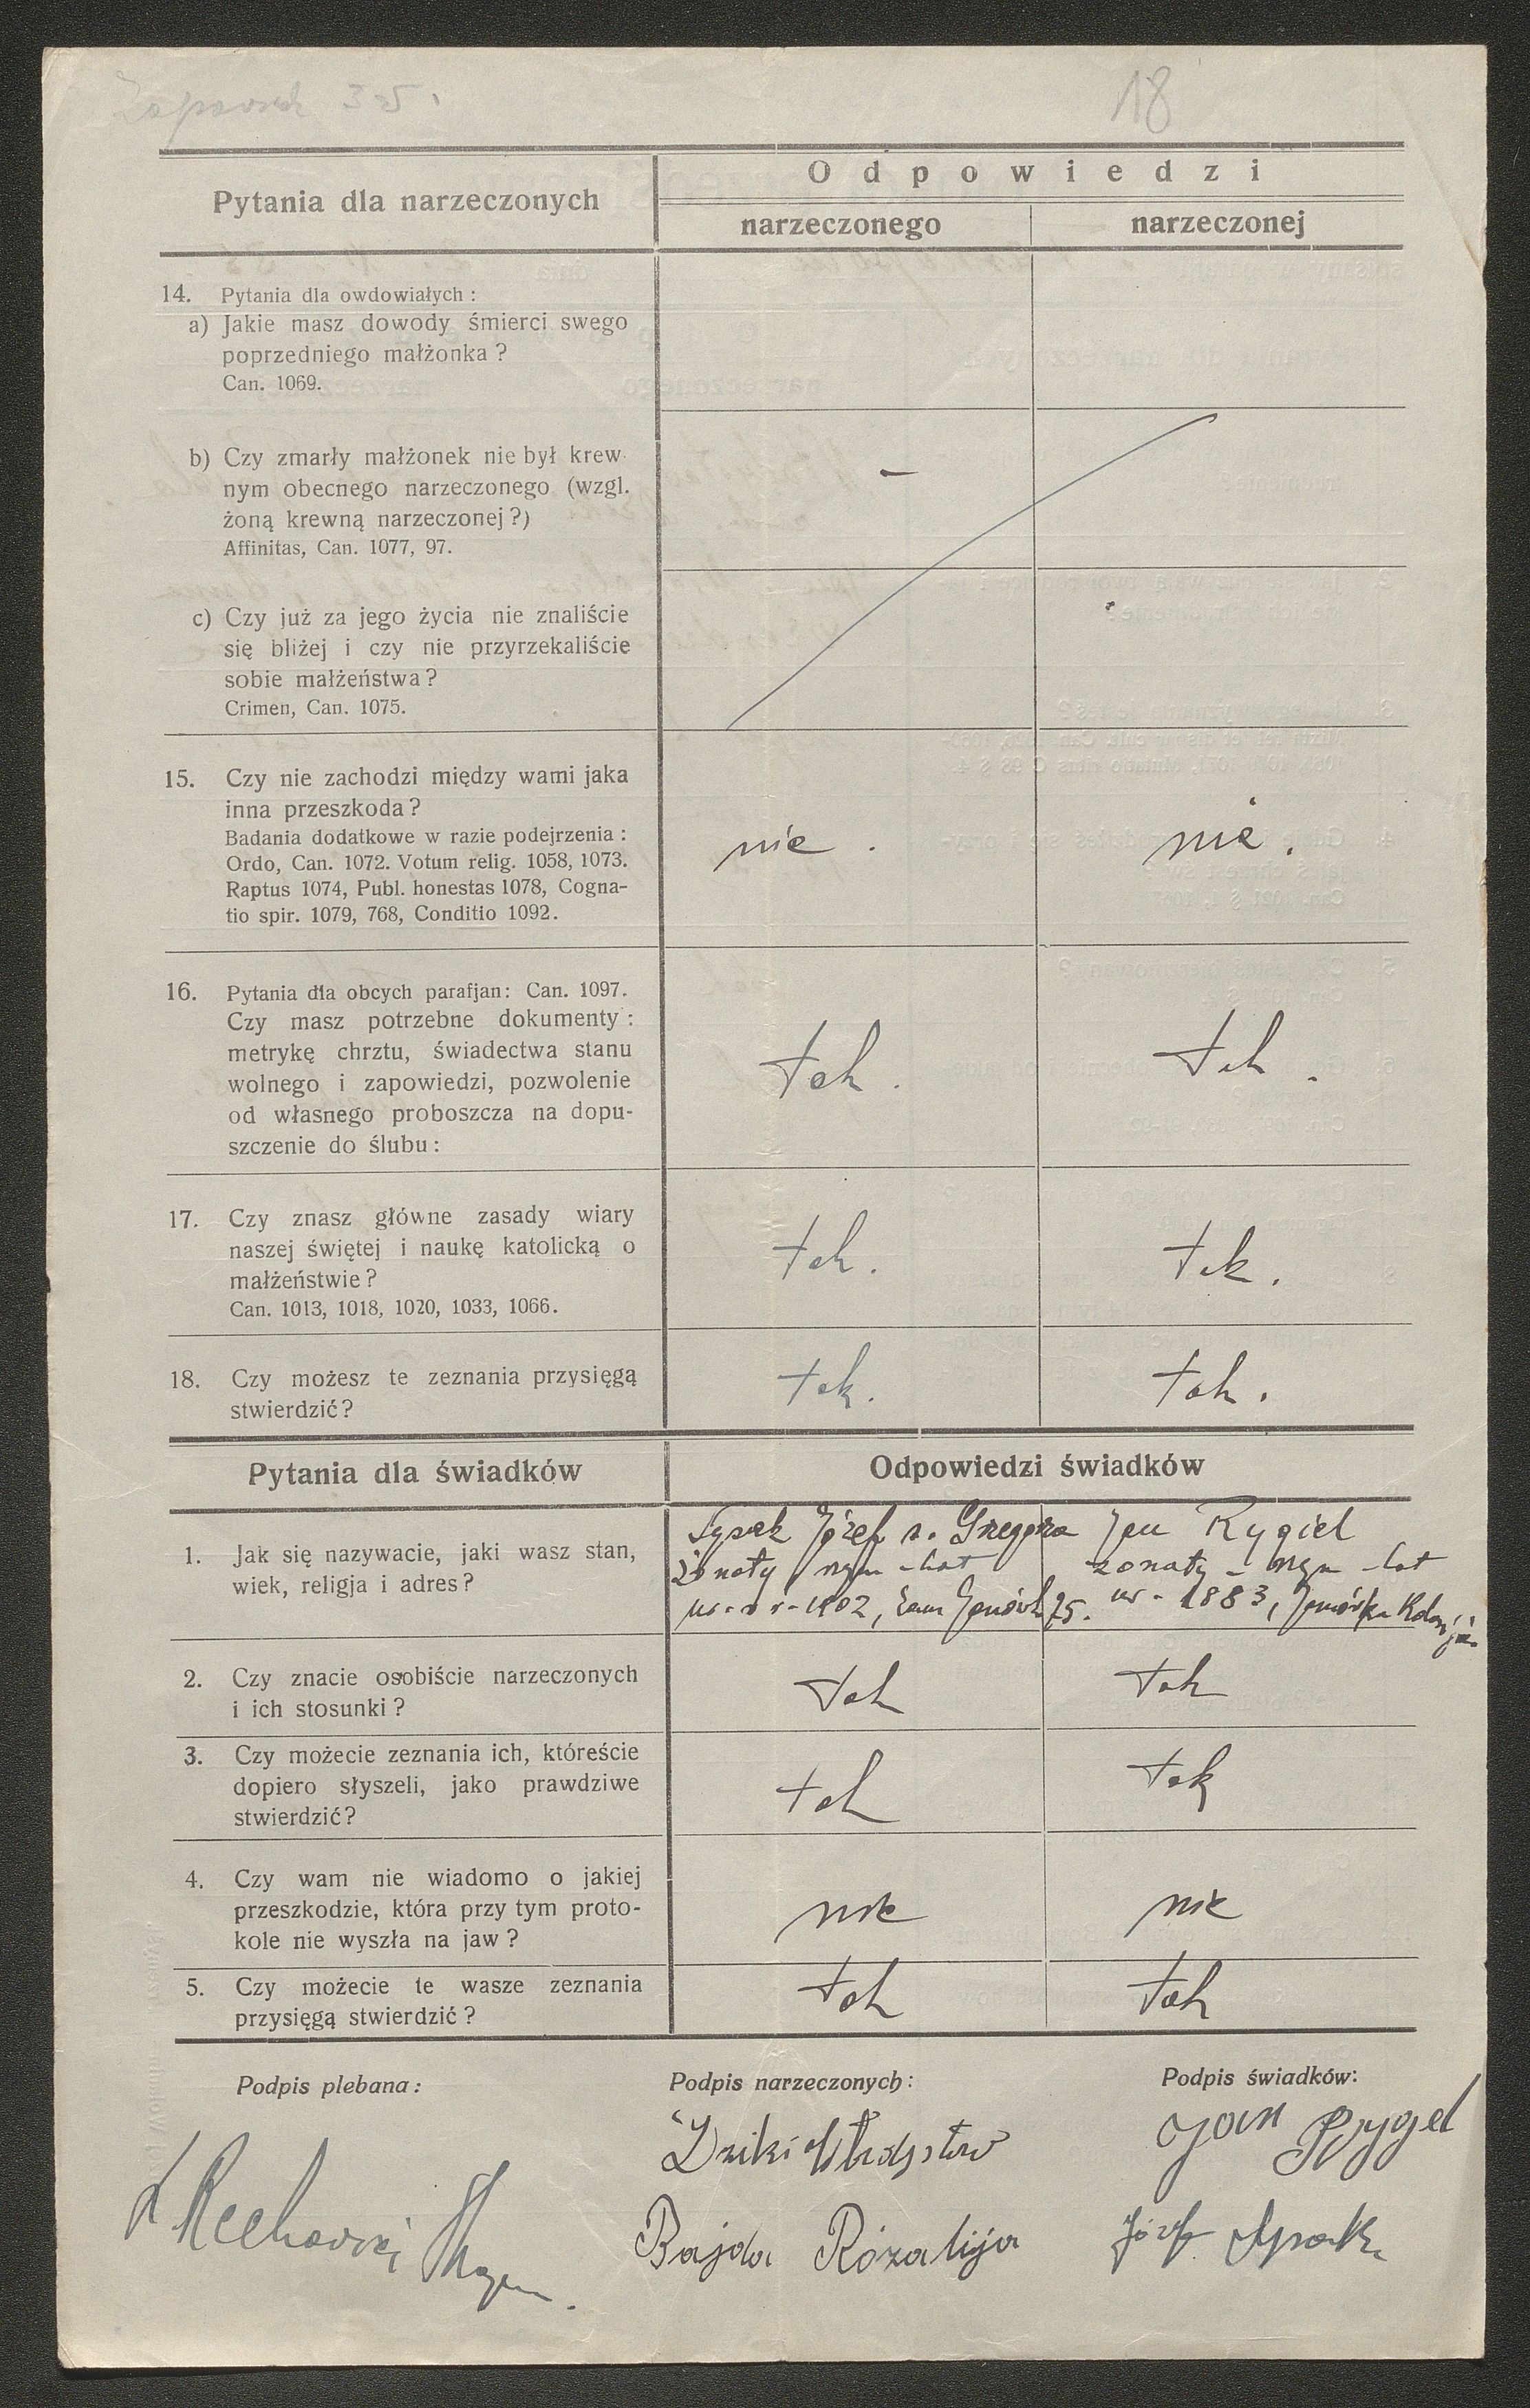 18
Pytania dla narzeczonych
Odpowiedzi
narzeczonego
narzeczonej
14. Pytania dla owdowiałych :
a) Jakie masz dowody śmierci swego
poprzedniego małżonka ?
Can. 1069.
b) Czy zmarły małżonek nie był krew-
nym obecnego narzeczonego (wzgl.
żoną krewną narzeczonej ?)
Affinitas, Can. 1077, 97.
–
c) Czy już za jego życia nie znaliście
się bliżej i czy nie przyrzekaliście
sobie małżeństwa ?
Crimen, Can. 1075.
15. Czy nie zachodzi między wami jaka
inna przeszkoda ?
Badania dodatkowe w razie podejrzenia :
Ordo, Can. 1072. Votum relig. 1058, 1073.
Raptus 1074, Publ. honestas 1078, Cogna-
tio spir. 1079, 768, Conditio 1092.
nie .
nie .
16. Pytania dla obcych parafjan: Can. 1097.
Czy masz potrzebne dokumenty :
metrykę chrztu, świadectwa stanu
wolnego i zapowiedzi, pozwolenie
od własnego proboszcza na dopu-
szczenie do ślubu :
tak .
tak .
17. Czy znasz główne zasady wiary
naszej świętej i naukę katolicką o
małżeństwie ?
Can. 1013, 1018, 1020, 1033, 1066.
tak .
tak .
18. Czy możesz te zeznania przysięgą
stwierdzić ?
tak .
tak .
Pytania dla świadków
Odpowiedzi świadków
1. Jak się nazywacie, jaki wasz stan,
wiek, religja i adres ?
Józef s. Grzegorza
żonaty rzym - kat
1902, zam 75.
Jan Rygiel
żonaty - rzym - kat
ur - 1883,
2. Czy znacie osobiście narzeczonych
i ich stosunki ?
tak
tak
3. Czy możecie zeznania ich, któreście
dopiero słyszeli, jako prawdziwe
stwierdzić ?
tak
tak
4. Czy wam nie wiadomo o jakiej
przeszkodzie, która przy tym proto-
kole nie wyszła na jaw ?
nie
nie
5. Czy możecie te wasze zeznania
przysięgą stwierdzić ?
tak
tak
Podpis plebana :
Podpis narzeczonych :
Dziki
Bajda Rózalija
Podpis świadków:
Jan Rygel
Józef